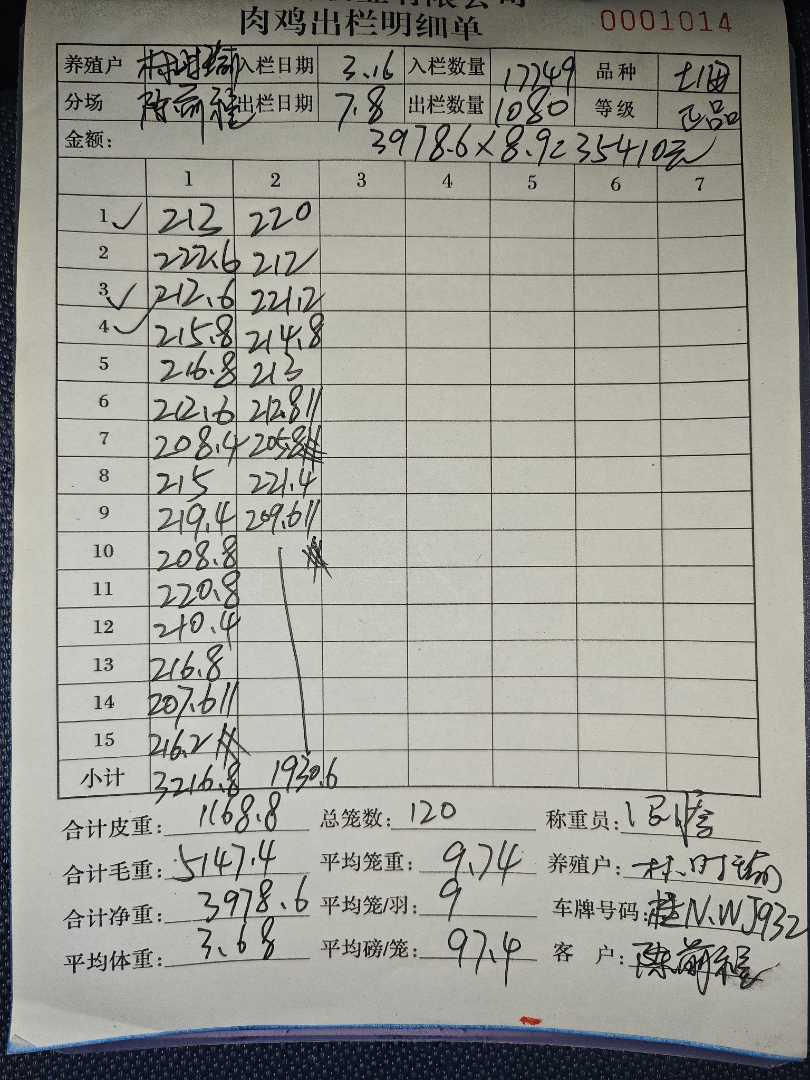 有限公司
肉鸡出栏明细单 0001014
养殖户 林时瑜 入栏日期 3.16 入栏数量 17749 品种 土
分场 陈前程 出栏日期 7.8 出栏数量 1080 等级 正品
金额: 3978.6×8.9=35410元
1 2 3 4 5 6 7
1 ✓ 213 220
2 222.6 212
3 ✓ 212.6 221.2
4 ✓ 215.8 214.8
5 216.8 213
6 212.6 212.8
7 208.4 205.8
8 215 221.4
9 219.4 209.6
10 208.8
11 220.8
12 210.4
13 216.8
14 207.6
15 216.2
小计 3216.8 1930.6
合计皮重: 1168.8 总笼数: 120 称重员:
合计毛重: 5147.4 平均笼重: 9.74 养殖户: 林时瑜
合计净重: 3978.6 平均笼/羽: 9 车牌号码: 桂N.WJ932
平均体重: 3.68 平均磅/笼: 97.4 客 户: 陈前程